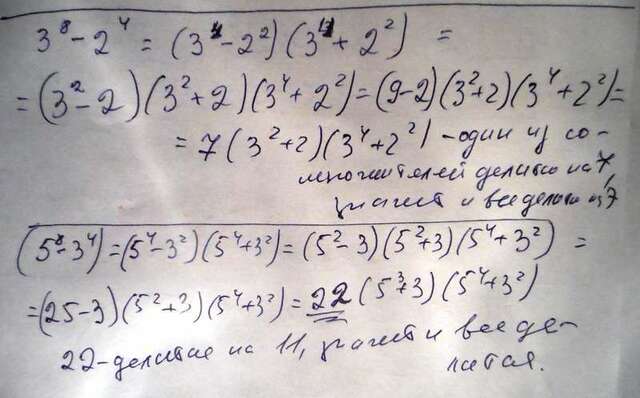 3⁸ - 2⁴ = (3⁴ - 2²)(3⁴ + 2²) =
= (3² - 2)(3² + 2)(3⁴ + 2²) = (9 - 2)(3² + 2)(3⁴ + 2²) =
= 7(3² + 2)(3⁴ + 2²) - один из со-
множителей делится на 7,
значит и все делится на 7
(5⁸ - 3⁴) = (5⁴ - 3²)(5⁴ + 3²) = (5² - 3)(5² + 3)(5⁴ + 3²) =
= (25 - 3)(5² + 3)(5⁴ + 3²) = 22(5³ + 3)(5⁴ + 3²)
22 - делится на 11, значит и все де-
лится.